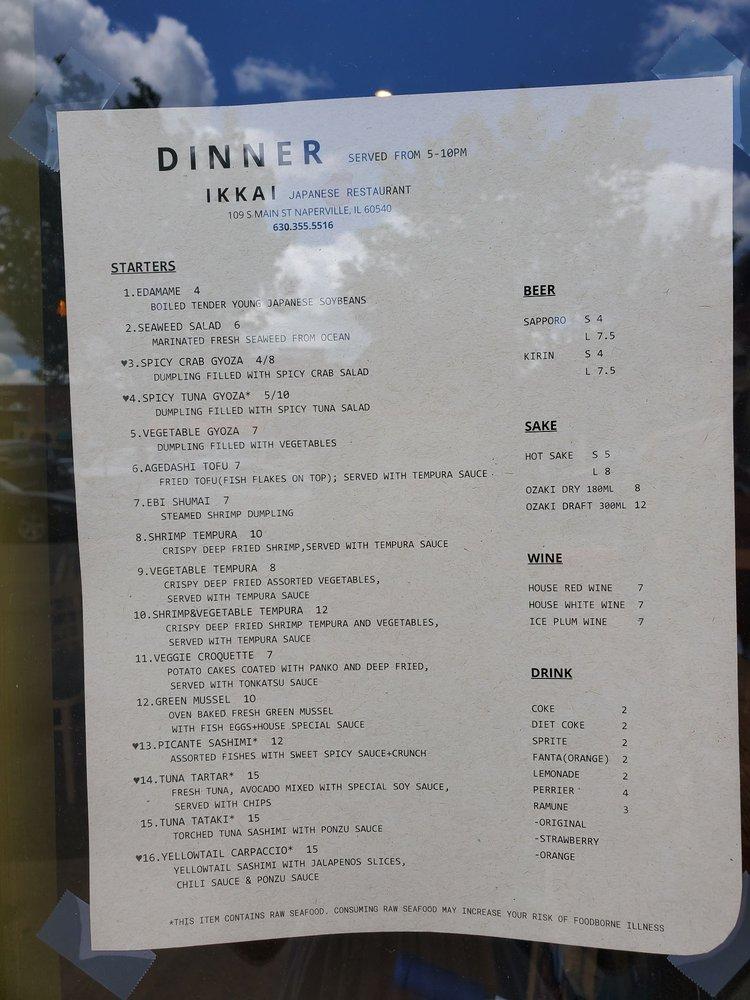 DINNER SERVED FROM 5-10PM
IKKAI JAPANESE RESTAURANT
109 S MAIN ST NAPERVILLE, IL 60540
630.355.5516
STARTERS
1.EDAMAME 4
BOILED TENDER YOUNG JAPANESE SOYBEANS
2.SEAWEED SALAD 6
MARINATED FRESH SEAWEED FROM OCEAN
♥3.SPICY CRAB GYOZA 4/8
DUMPLING FILLED WITH SPICY CRAB SALAD
♥4.SPICY TUNA GYOZA* 5/10
DUMPLING FILLED WITH SPICY TUNA SALAD
5.VEGETABLE GYOZA 7
DUMPLING FILLED WITH VEGETABLES
6.AGEDASHI TOFU 7
FRIED TOFU(FISH FLAKES ON TOP); SERVED WITH TEMPURA SAUCE
7.EBI SHUMAI 7
STEAMED SHRIMP DUMPLING
8.SHRIMP TEMPURA 10
CRISPY DEEP FRIED SHRIMP,SERVED WITH TEMPURA SAUCE
9.VEGETABLE TEMPURA 8
CRISPY DEEP FRIED ASSORTED VEGETABLES,
SERVED WITH TEMPURA SAUCE
10.SHRIMP&VEGETABLE TEMPURA 12
CRISPY DEEP FRIED SHRIMP TEMPURA AND VEGETABLES,
SERVED WITH TEMPURA SAUCE
11.VEGGIE CROQUETTE 7
POTATO CAKES COATED WITH PANKO AND DEEP FRIED,
SERVED WITH TONKATSU SAUCE
12.GREEN MUSSEL 10
OVEN BAKED FRESH GREEN MUSSEL
WITH FISH EGGS+HOUSE SPECIAL SAUCE
♥13.PICANTE SASHIMI* 12
ASSORTED FISHES WITH SWEET SPICY SAUCE+CRUNCH
♥14.TUNA TARTAR* 15
FRESH TUNA, AVOCADO MIXED WITH SPECIAL SOY SAUCE,
SERVED WITH CHIPS
15.TUNA TATAKI* 15
TORCHED TUNA SASHIMI WITH PONZU SAUCE
♥16.YELLOWTAIL CARPACCIO* 15
YELLOWTAIL SASHIMI WITH JALAPENOS SLICES,
CHILI SAUCE & PONZU SAUCE
BEER
SAPPORO S 4
L 7.5
KIRIN S 4
L 7.5
SAKE
HOT SAKE S 5
L 8
OZAKI DRY 180ML 8
OZAKI DRAFT 300ML 12
WINE
HOUSE RED WINE 7
HOUSE WHITE WINE 7
ICE PLUM WINE 7
DRINK
COKE 2
DIET COKE 2
SPRITE 2
FANTA(ORANGE) 2
LEMONADE 2
PERRIER 4
RAMUNE 3
-ORIGINAL
-STRAWBERRY
-ORANGE
*THIS ITEM CONTAINS RAW SEAFOOD. CONSUMING RAW SEAFOOD MAY INCREASE YOUR RISK OF FOODBORNE ILLNESS